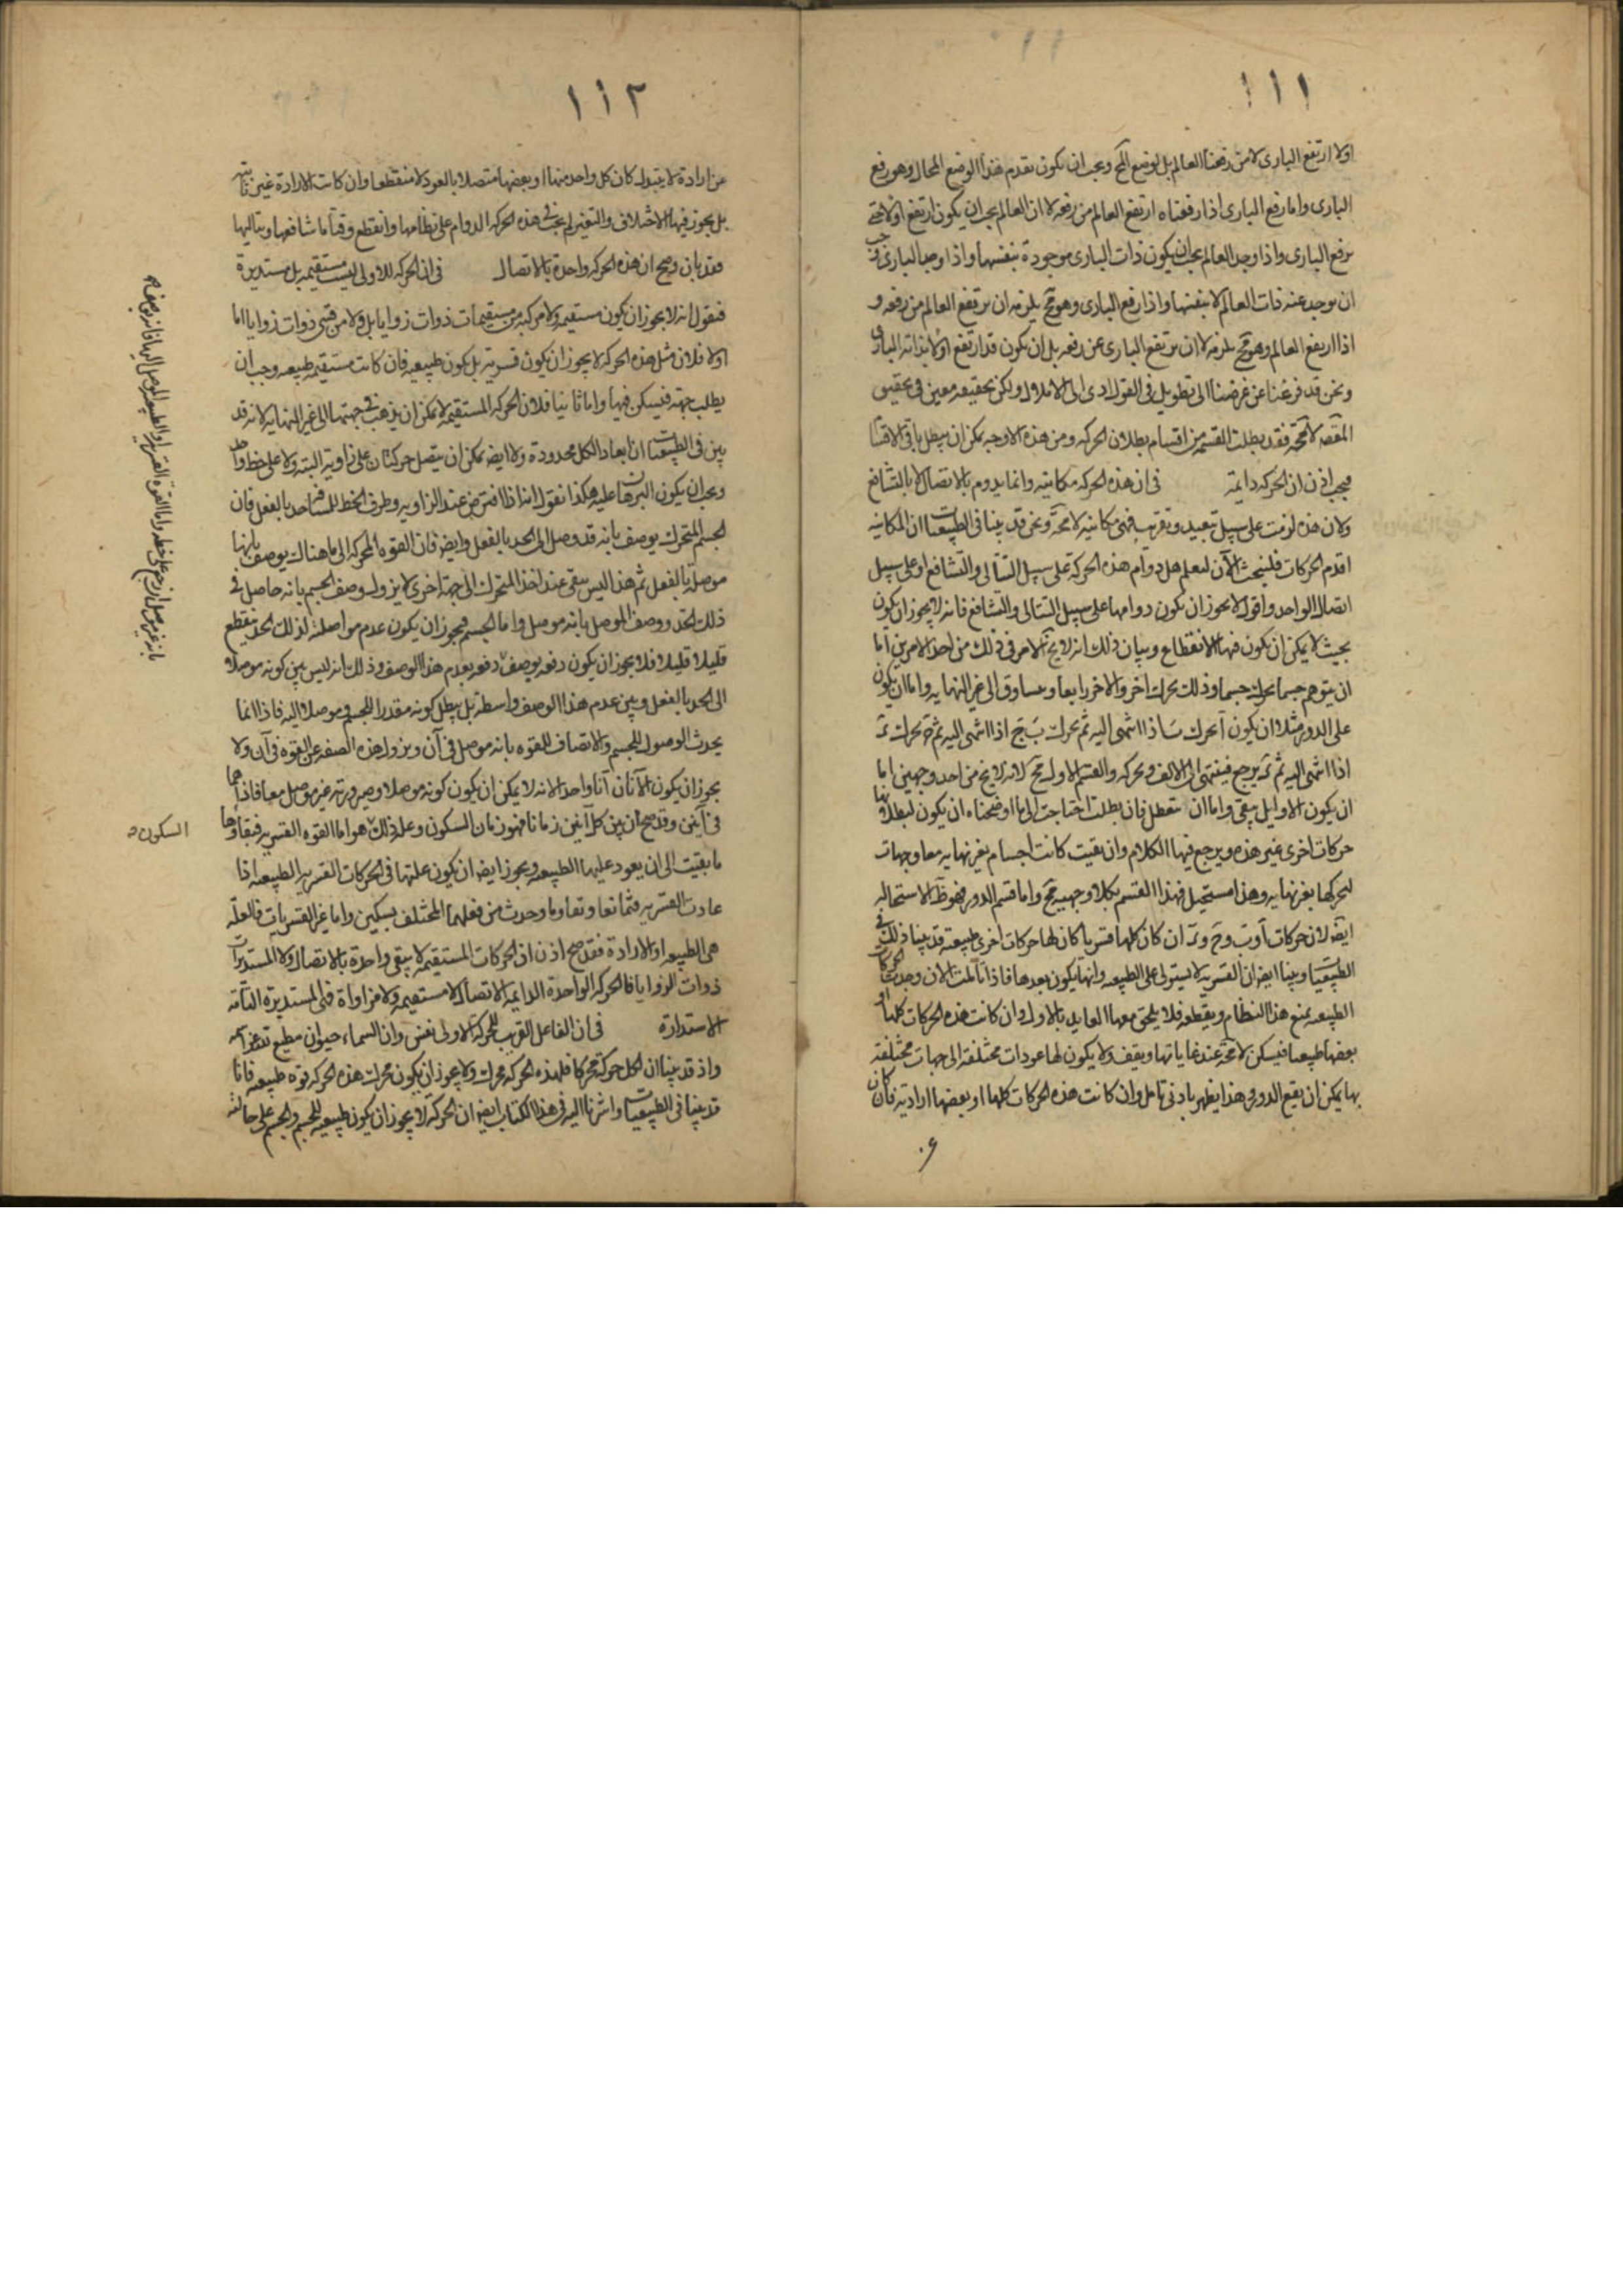 ١١١
اولا ارتفع الباری لا من رفعنا العالم بل لوضع المح ویجب ان یکون تقدم هذا الوضع المحال وهو رفع
الباری واما رفع الباری اذا رفعناه ارتفع العالم من رفعه لا ان العالم یجب ان یکون ارتفع اولا حتی
یرفع الباری واذا وجد العالم یجب ان یکون ذات الباری موجودة بنفسها واذا وجد الباری وجب
ان یوجد عنه ذات العالم لا بنفسها واذا رفع الباری وهو مح یلزمه ان یرتفع العالم من رفعه و
اذا ارتفع العالم وهو مح یلزمه لا ان یرتفع الباری عن رفعه بل ان یکون قد ارتفع اولا بذاته الباری
ونحن قد فرغنا عن غرضنا الی تطویل فی القول ادی الی الاملال ولکن تحقیقه معین فی تحقیق
المقصد لا محة فقد بطلت القسمه من اقسام بطلان الحرکه ومن هذه الاوجه یمکن ان یبطل باقی الاقسا
فیجب اذن ان الحرکه دایمة فی ان هذه الحرکه مکانیه وانما یدوم بالاتصال لا بالتشافع
ولان هذه لزمت علی سبیل تبعید وتقریب فهی مکانیه لا محة ونحن قد بینا فی الطبیعیات ان المکانیه
اقدم الحرکات فلنبحث الآن لنعلم هل دوام هذه الحرکة علی سبیل التتالی والتشافع او علی سبیل
اتصال الواحد واقول لا یجوز ان تکون دوامها علی سبیل التتالی والتشافع فانه لا یجوز ان یکون
بحیث لا یمکن ان تکون فیها الانقطاع وبیان ذلک انه لا یخ الامر فی ذلک من احد الامرین اما
ان یتوهم جسما یحرک جسما وذلک یحرک اخر والاخر رابعا ویساوق الی غیر النهایه واما ان یکون
علی الدور مثلا ان یکون آ یحرک ب اذا انتهی الیه ثم یحرک ب ج اذا انتهی الیه ثم ج یحرک د
اذا انتهی الیه ثم د یرجع فینتهی الی الالف ویحرکه والقسم الاول مح لانه لا یخ من احد وجهین اما
ان یکون الاوایل یبقی واما ان تبطل فان بطلت احتاجت الی ما اوضحناه ان یکون لبطلانها
حرکات اخری غیر هذه ویرجع فیها الکلام وان بقیت کانت اجسام بغیر نهایه معا وجهات
لحرکها بغیر نهایه وهذا مستحیل فهذا القسم بکلا وجهیه مح واما قسم الدور فهو ظ الاستحاله
ایضا لان حرکات آ وب وج ود ان کان کلها قسریا کان لها حرکات اخری طبیعیة قد بینا ذلک فی
الطبیعیات وبینا ایضا ان القسریه لا یستولی علی الطبیعه وانها یکون بعدها
الطبیعه یمنع هذا النظام ویقطعه فلا یلحق معها العاید بالاول وان کانت هذه الحرکات کلها او
بعضها طبیعیا فیسکن لا محة عند غایاتها ویقف ولا یکون لها عودات مختلفة الی جهات مختلفة
بها یمکن ان یقع الدور هذا یظهر بادنی تامل وان کانت هذه الحرکات کلها او بعضها ارادیة فان کان
١١٢
عن ارادة لا یتبدل کان کل واحد منها او بعضها متصلا بالعود لا منقطعا وان کانت الارادة غیر ثابته
بل یجوز فیها الاختلاف والتغیر لم یجب فی هذه الحرکه الدوام علی نظامها وانقطع وقتا ما شافعها وتتالیها
فقد بان وصح ان هذه الحرکه واحدة بالاتصال فی ان الحرکه الاولی لیست مستقیمه بل مستدیرة
فنقول انه لا یجوز ان یکون مستقیمه ولا مرکبه من مستقیمات ذوات زوایا بل ولا من قسی ذوات زوایا اما
اولا فلان مثل هذه الحرکه لا یجوز ان یکون قسریة بل یکون طبیعیه فان کانت مستقیمه طبیعیه وجب ان
یطلب جهة فیسکن فیها واما ثانیا فلان الحرکه المستقیمه لا یمکن ان یذهب فی جهتها الی غیر النهایه لانه قد
بین فی الطبیعیات ان ابعاد الکل محدودة ولا ایضا یمکن ان یتصل حرکتان علی زاویة البته ولا علی خط واحد
ویجب ان یکون البرهان علیه هکذا نقول انه اذا افترض عند الزاویه وطرف الخط للمسافه احد بالفعل فان
الجسم المتحرک یوصف بانه قد وصل الی الحد بالفعل وایضا فان القوة المحرکه الی ما هناک یوصف بانها
موصلة بالفعل ثم هذا لیس یبقی عند اخذ المتحرک الی جهة اخری لا یزول وصف الجسم بانه حاصل فی
ذلک الحد ووصف الموصل بانه موصل واما الجسم فیجوز ان یکون عدم مواصلته لذلک الحد یقطع
قلیلا قلیلا فلا یجوز ان یکون دفعه یوصف دفعه بعدم هذا الوصف وذلک انه لیس بین کونه موصلا
الی الحد بالفعل وبین عدم هذا الوصف واسطه بل یبطل کونه مقدرا للجسم وموصلا الیه فاذا انما
یحدث الوصول للجسم والاتصاف للقوه بانه موصل فی آن ویزول هذه الصفه عن القوه فی آن ولا
یجوز ان یکون الآنان آنا واحدا لانه لا یمکن ان یکون کونه موصلا وصیرورته غیر موصل معا فاذا هما
فی آنین وقد صح ان بین کل آنین زمانا فهو زمان السکون وعلة ذلک هو اما القوه القسریه فبقاؤها
ما بقیت الی ان یعود علیها الطبیعه ویجوز ایضا ان یکون علتها فی الحرکات القسریه الطبیعه اذا
عادت القسریه فتمانعا وتقاوما وحدث من فعلهما المختلف تسکین واما غیر القسریات فالعلة
هی الطبیعه او الارادة فقد صح اذن ان الحرکات المستقیمه لا یبقی واحدة بالاتصال ولا المستدیرات
ذوات الزوایا فالحرکه الواحدة الدایمه الاتصال لا مستقیمه ولا مزاواة فهی المستدیرة التامة
الاستدارة فی ان الفاعل القریب للحرکة الاولی نفس وان السماء حیوان مطیع لله عز اسمه
واذ قد بینا ان لکل حرکة محرکا فلهذه الحرکه محرک ولا یجوز ان یکون محرک هذه الحرکه قوه طبیعیه فانا
قد بینا فی الطبیعیات واشرنا الیه فی هذا الکتاب ایضا ان الحرکة لا یجوز ان یکون طبیعیه للجسم والجسم علی حالته
السکون